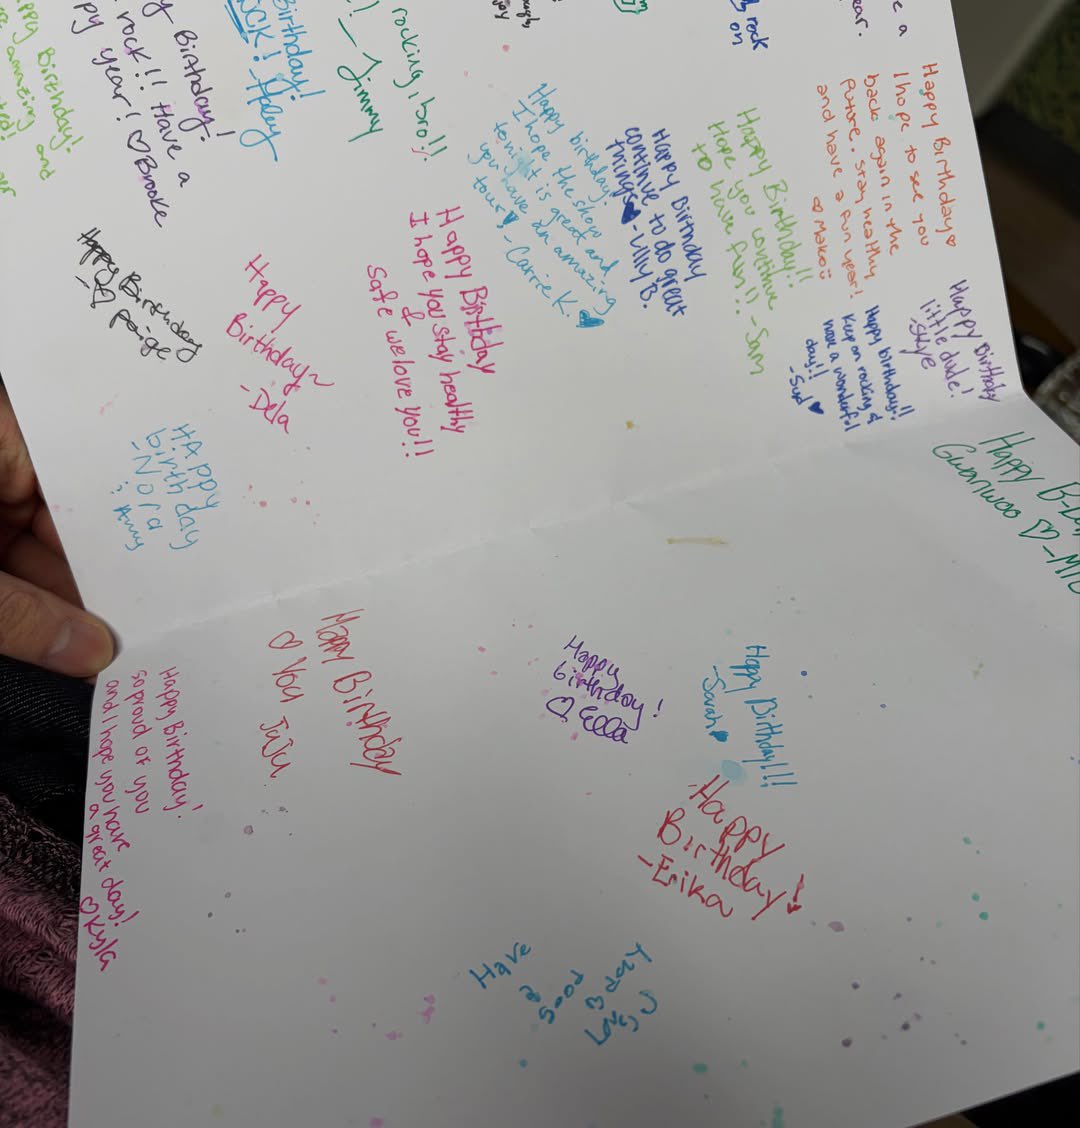 Happy Birthday!
amazing and
Birthday!
rock!! Have a
year! ♡ Brooke
Birthday!
ROCK! - Haley
rocking, bro!!
! - Jimmy
rock
on
e a
ear.
Happy Birthday♡
I hope to see you
back again in the
future.. stay healthy
and have a fun year!
♡ Makoii
Happy Birthday!!
Hope you continue
to have fun!! - Sam
Happy Birthday
continue to do great
things♥ - Lily B.
Happy birthday!
I hope the show
tonight is great and
you have an amazing
tour♥ - Carrie K. ♥
Happy Birthday
I hope you stay healthy
&
Safe we love you!!
Happy
Birthday~
- Dela
Happy Birthday
- ♡ paige
HAppy
birthday
- Nora
Happy Birthday
little dude!
- Skye
Happy birthday!!
Keep on rocking &
have a wonderful
day!!
- Syd ♥
Happy B-Da
Gwanwoo ♡ - MIC
Happy Birthday!
so proud of you
and I hope you have
a great day!
♡ Kyla
Happy Birthday
♡ You JuJu
Happy
birthday!
♡ Ella
Happy Birthday!!!
- Sarah ♥
Happy
Birthday!
- Erika
Have